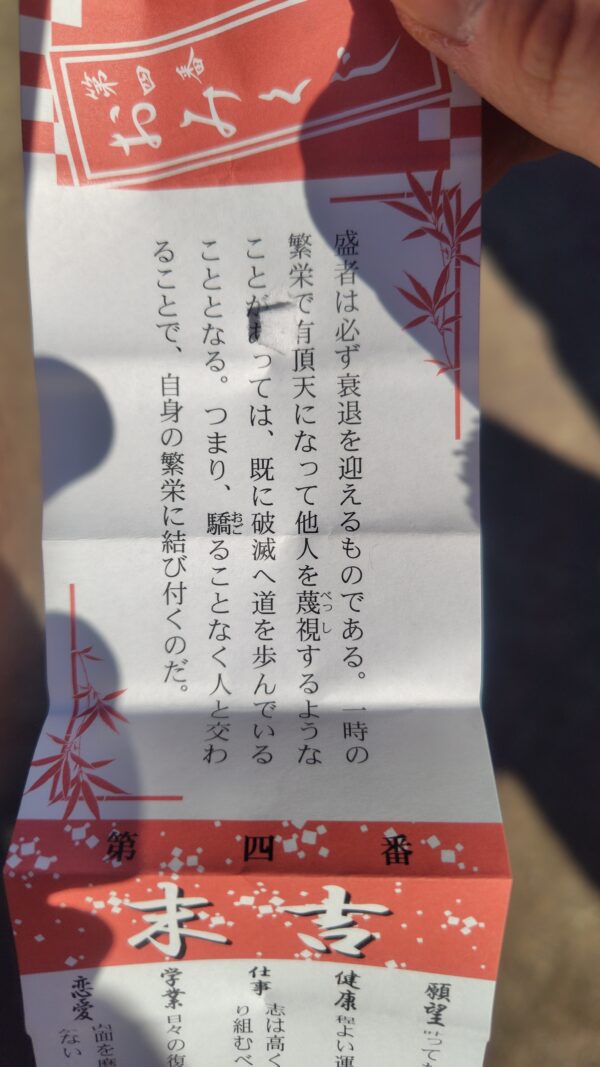 第四番
おみくじ
盛者は必ず衰退を迎えるものである。一時の
繁栄で有頂天になって他人を蔑視するような
べっし
ことがあっては、既に破滅へ道を歩んでいる
こととなる。つまり、驕ることなく人と交わ
おご
ることで、自身の繁栄に結び付くのだ。
第四番
末吉
願望
健康 程よい運
仕事 志は高く
り組むべ
学業 日々の復
恋愛 内面を
ない